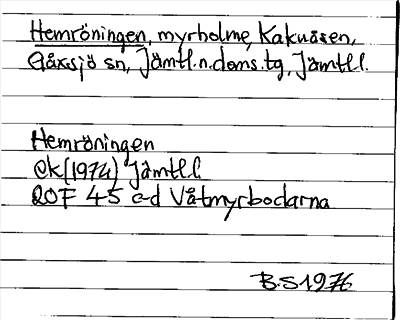 Hemröningen, myrholme, Kakuåsen,
Gåxsjö sn, Jämtl.n.doms.tg, Jämtl.l.
Hemröningen
ek(1974) Jämtl.l
ROF 45 c-d Våtmyrbodarna
B.S 1976